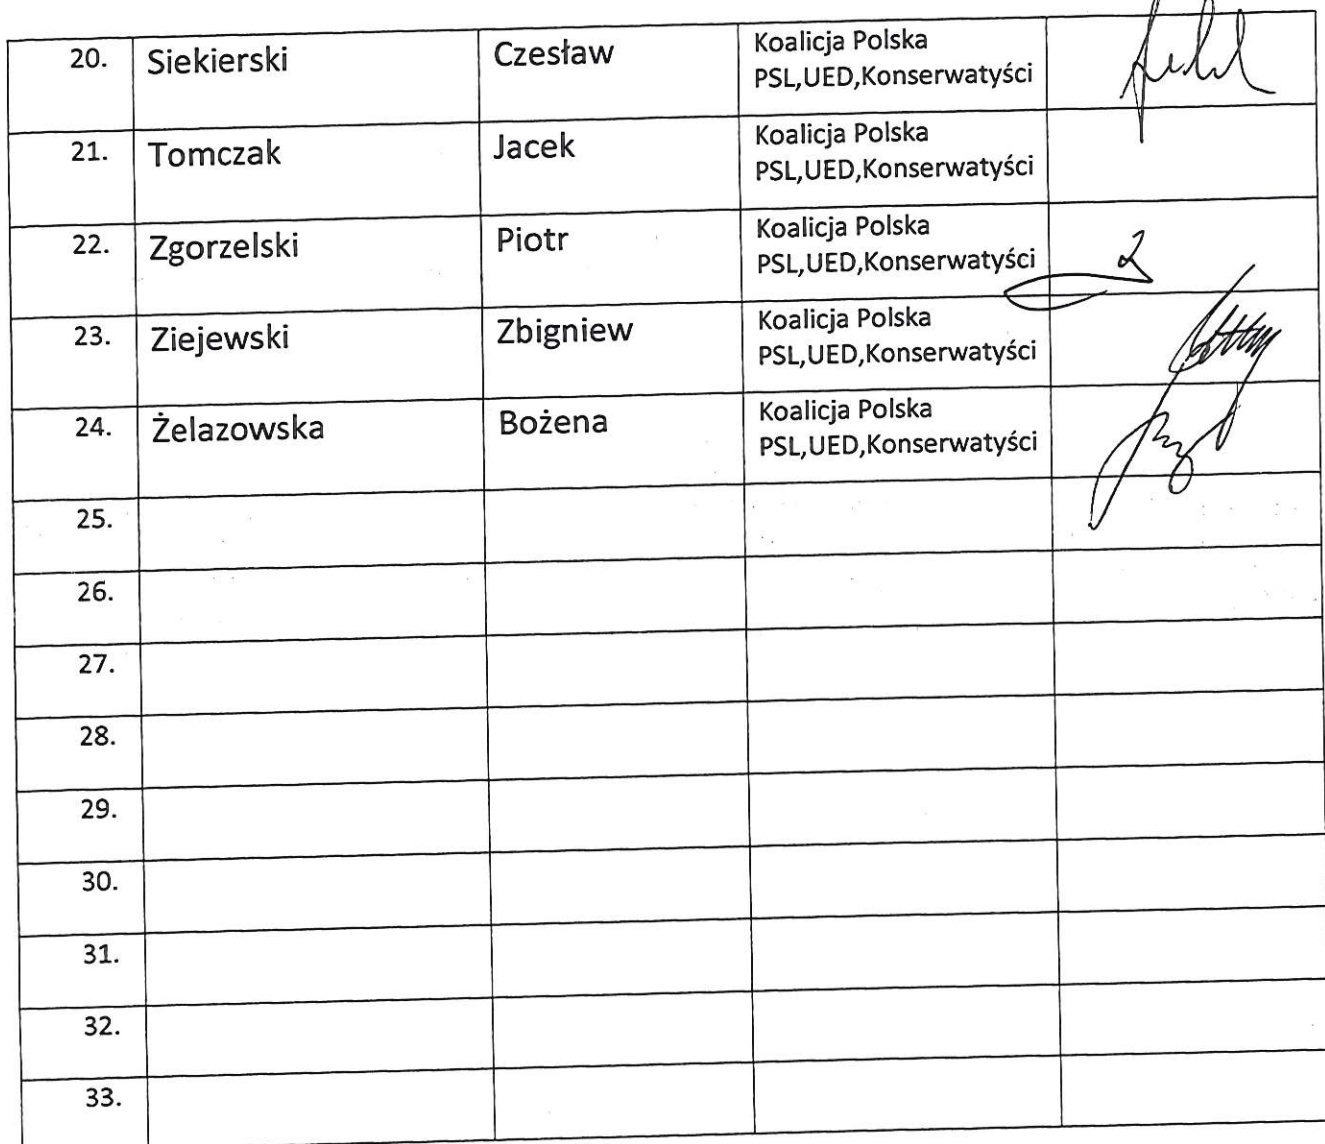 20. Siekierski Czesław Koalicja Polska
PSL,UED,Konserwatyści
21. Tomczak Jacek Koalicja Polska
PSL,UED,Konserwatyści
22. Zgorzelski Piotr Koalicja Polska
PSL,UED,Konserwatyści
23. Ziejewski Zbigniew Koalicja Polska
PSL,UED,Konserwatyści
24. Żelazowska Bożena Koalicja Polska
PSL,UED,Konserwatyści
25.
26.
27.
28.
29.
30.
31.
32.
33.